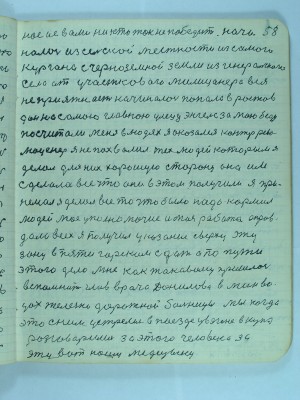 нас и с вами никто так не победит. начи 58
налог из сельской местности из самого
кургана с черноземной земли из генеральского
села от участкового милицанера вся
неприязнь начиналос попал в ростов
дон на самою главною улицу энгельса мою все
посчитали меня в людях я оказался контрре
люценер я не похвалил тех людей которым я
делал для них хорошую сторону она им
сделала все что они в этом получили я при
нимал я делал все то что было надо кормил
людей мое упешно точие и моя работа, оправ
дало всех я получил указание сверху эту
зону в пяти гарском сдат а по пути
этого дело мне как таковому пришлос
вспомнит глав врача Данилову в мин во
дах железно дорожной больницы мы когда
это с ним встрелис в поезде в вагоне в купэ
разговарили за этого человека за
эту вот нашу медецину